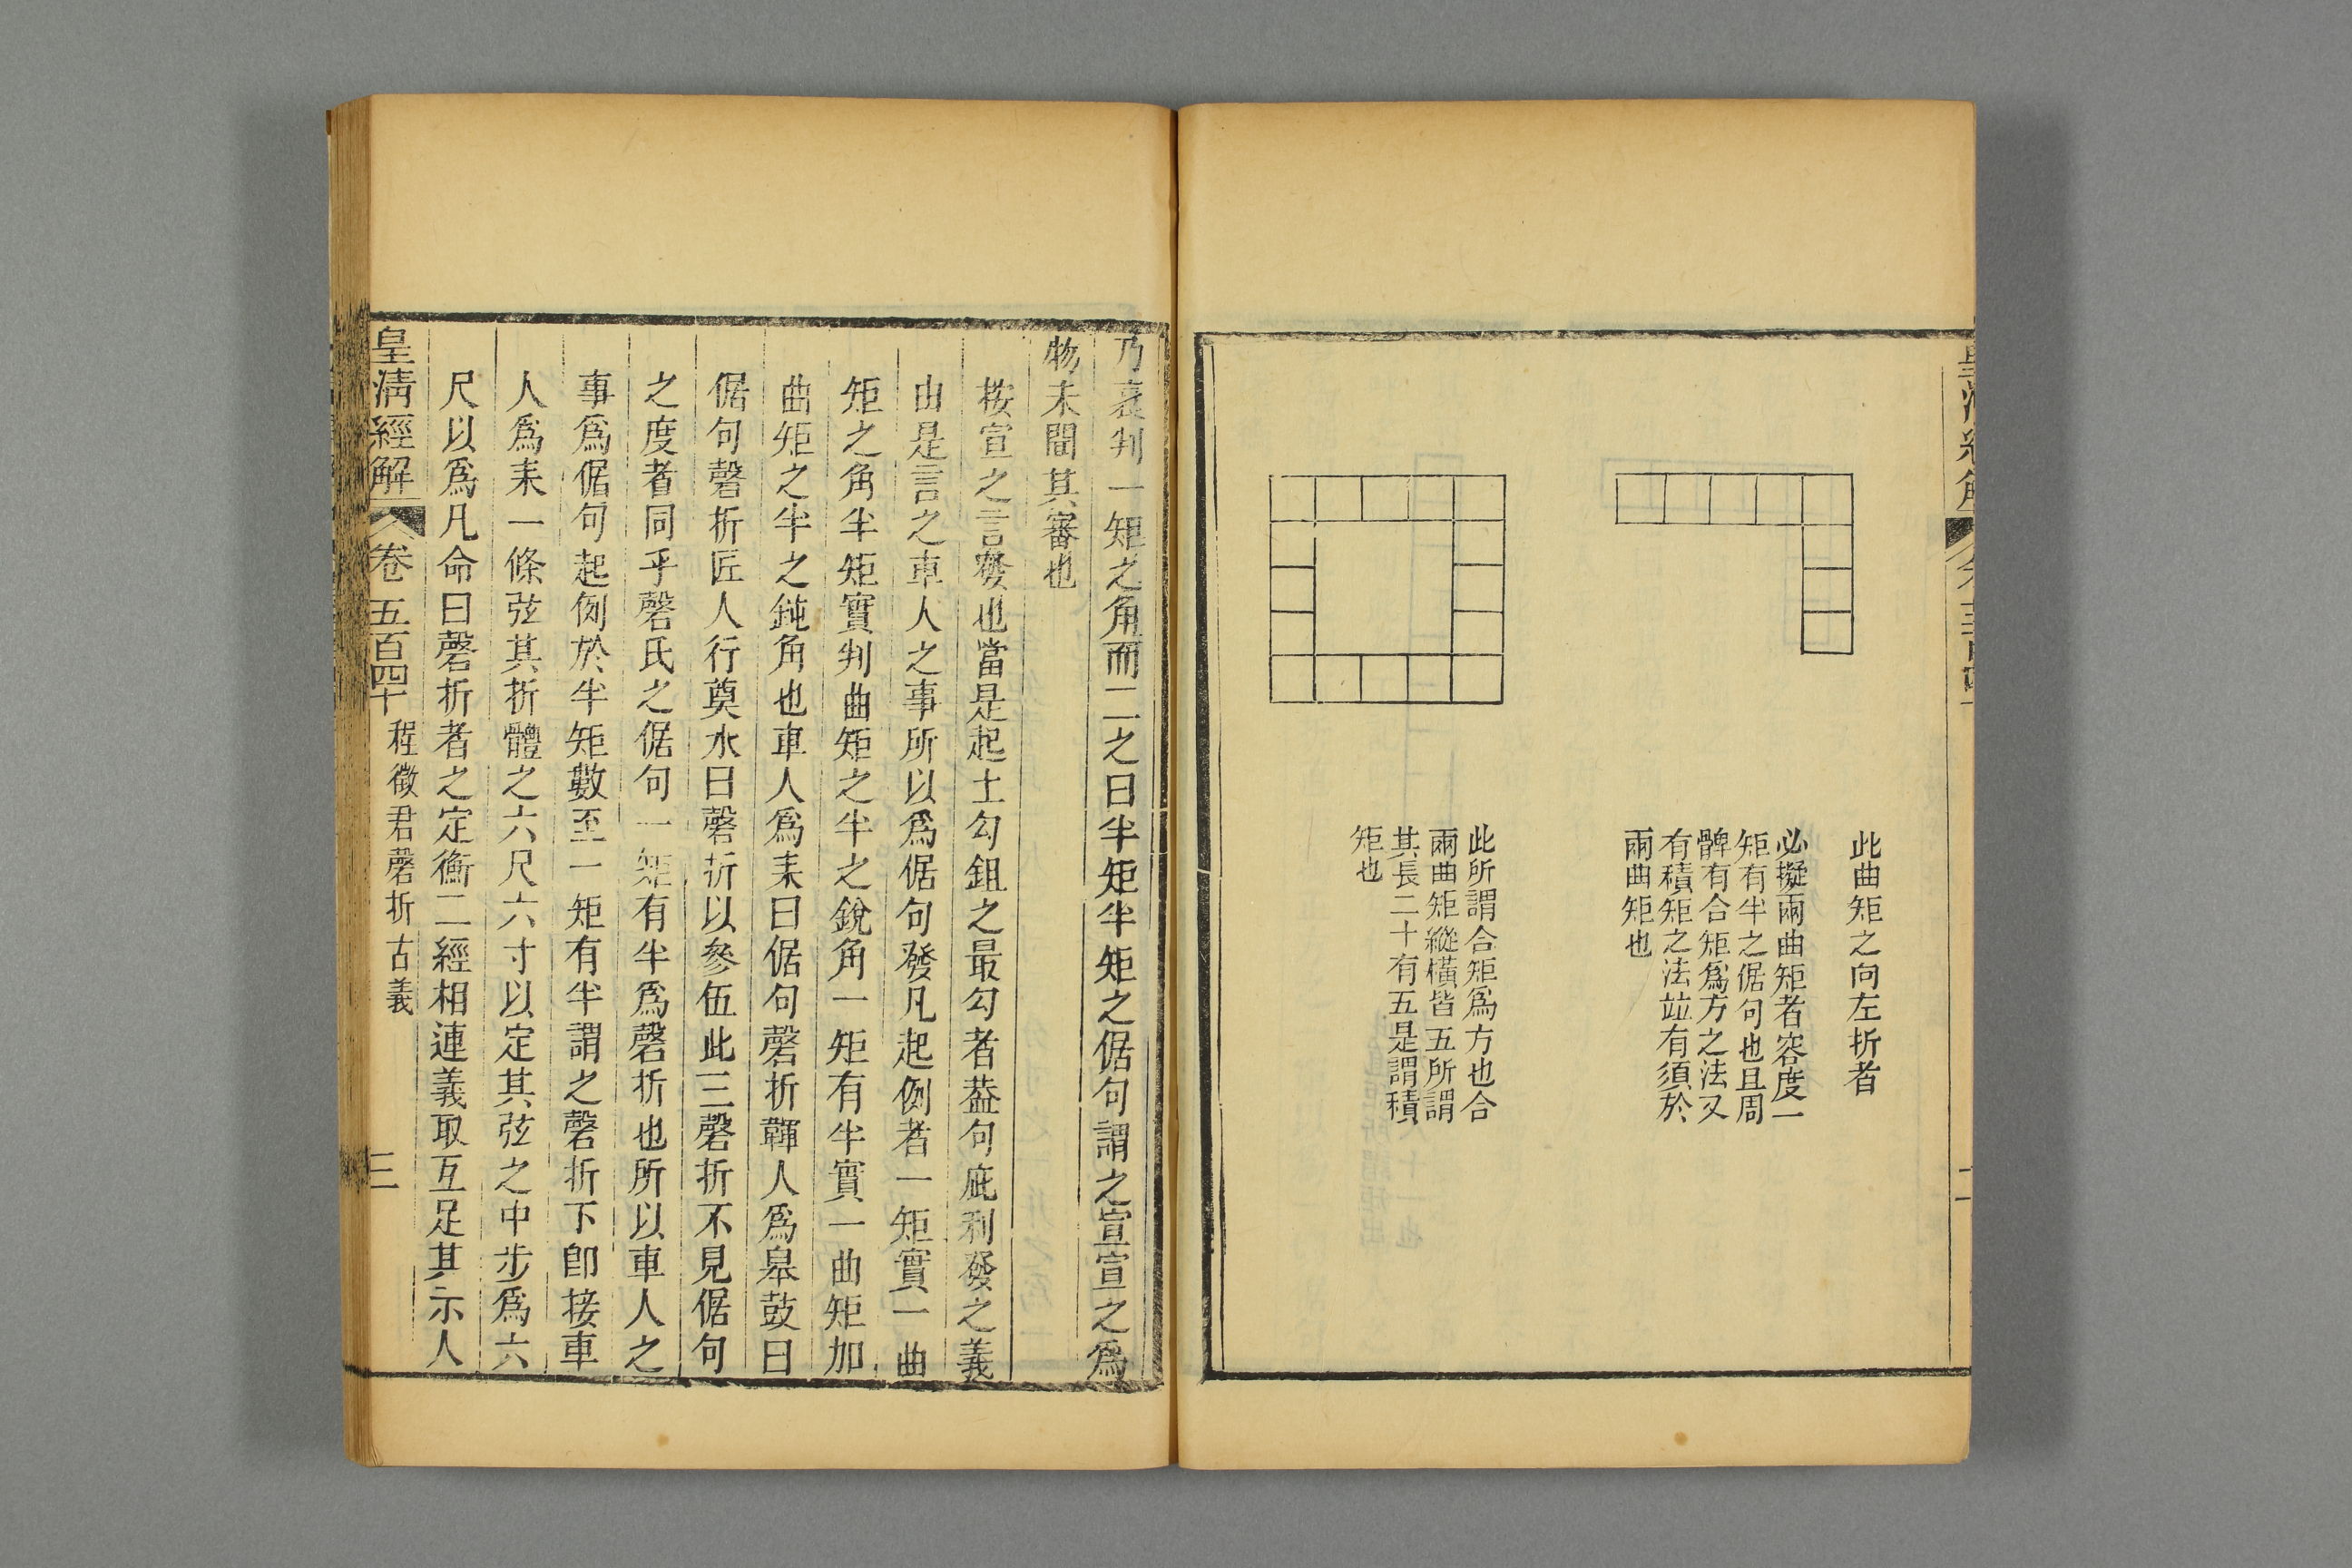 此曲矩之向左折者
必擬兩曲矩者容度一
矩有半之倨句也且周
髀有合矩爲方之法又
有積矩之法竝有須於
兩曲矩也
此所謂合矩爲方也合
兩曲矩縱橫皆五所謂
其長二十有五是謂積
矩也
乃衰判一矩之角而二之曰半矩半矩之倨句謂之宣宣之爲
物未聞其審也
按宣之言發也當是起土勾鉏之最勾者葢句庇利發之義
由是言之車人之事所以爲倨句發凡起例者一矩實一曲
矩之角半矩實判曲矩之半之銳角一矩有半實一曲矩加
曲矩之半之鈍角也車人爲耒曰倨句磬折韗人爲皋鼓曰
倨句磬折匠人行奠水曰磬折以參伍此三磬折不見倨句
之度者同乎磬氏之倨句一矩有半爲磬折也所以車人之
事爲倨句起例於半矩數至一矩有半謂之磬折下卽接車
人爲耒一條弦其折體之六尺六寸以定其弦之中步爲六
尺以爲凡命曰磬折者之定衡二經相連義取互足其示人
皇淸經解 卷五百四十 程徵君磬折古義 三